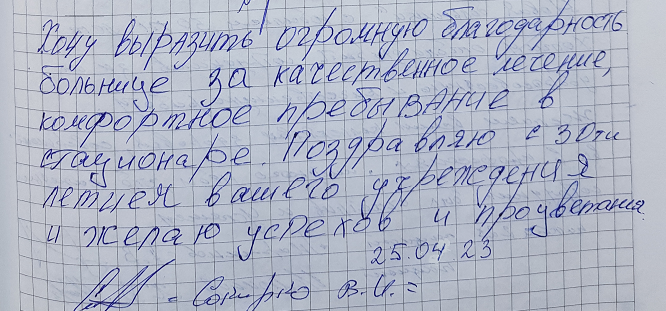 Хочу выразить огромную благодарность
больнице за качественное лечение,
комфортное пребывание в
стационаре. Поздравляю с 30ти
летием вашего учреждения
и желаю успехов и процветания
25.04 23
- В.И. =